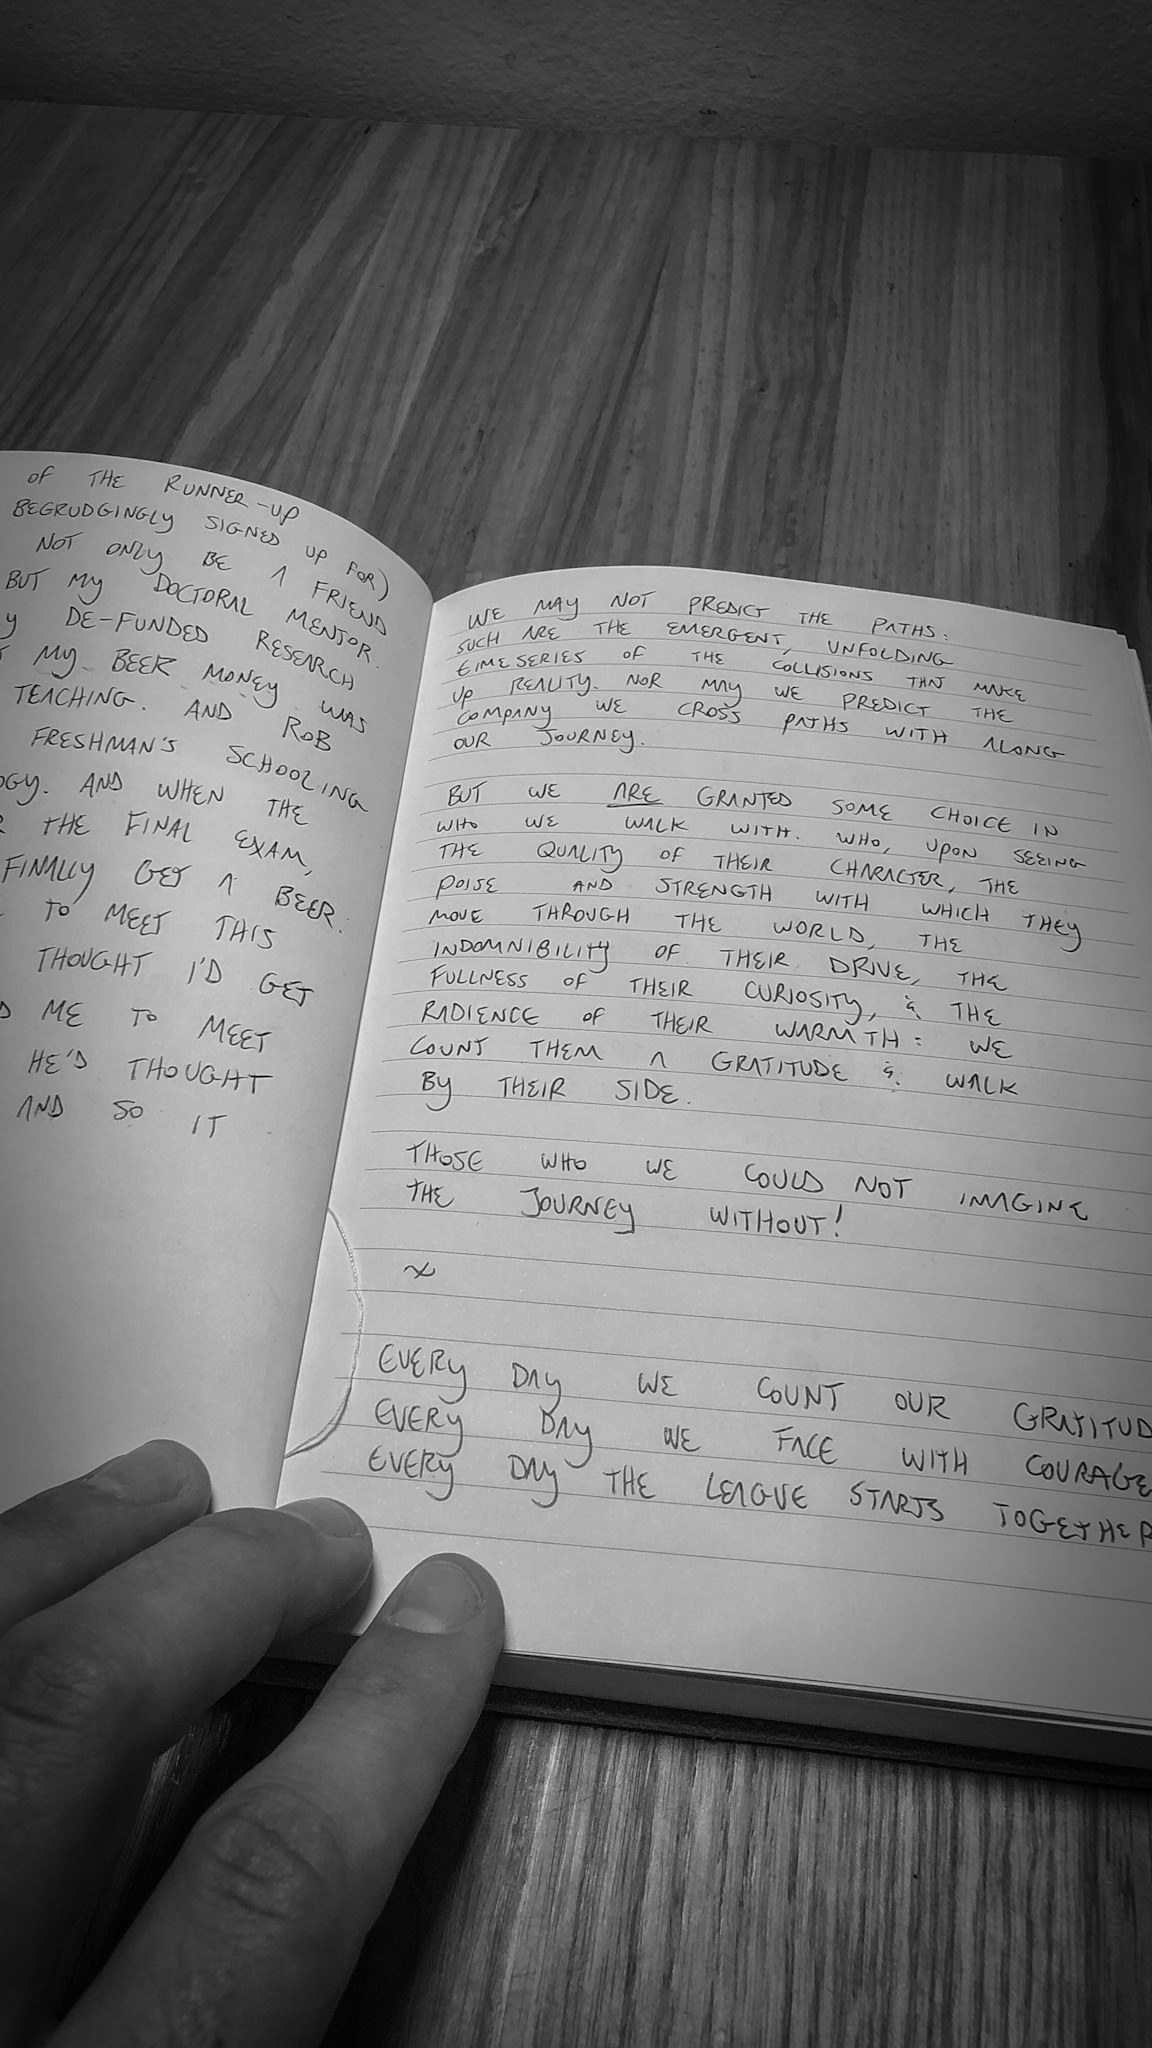 OF THE RUNNER-UP
BEGRUDGINGLY SIGNED UP FOR)
NOT ONLY BE A FRIEND
BUT MY DOCTORAL MENTOR.
DE-FUNDED RESEARCH
MY BEER MONEY WAS
TEACHING. AND ROB
FRESHMAN'S SCHOOLING
OGY. AND WHEN THE
THE FINAL EXAM,
FINALLY GET A BEER.
TO MEET THIS
THOUGHT I'D GET
ME TO MEET
HE'D THOUGHT
AND SO IT
WE MAY NOT PREDICT THE PATHS:
SUCH ARE THE EMERGENT, UNFOLDING
TIMESERIES OF THE COLLISIONS THAT MAKE
UP REALITY. NOR MAY WE PREDICT THE
COMPANY WE CROSS PATHS WITH ALONG
OUR JOURNEY.
BUT WE ARE GRANTED SOME CHOICE IN
WHO WE WALK WITH. WHO, UPON SEEING
THE QUALITY OF THEIR CHARACTER, THE
POISE AND STRENGTH WITH WHICH THEY
MOVE THROUGH THE WORLD, THE
INDOMNIBILITY OF THEIR DRIVE, THE
FULLNESS OF THEIR CURIOSITY, & THE
RADIENCE OF THEIR WARMTH: WE
COUNT THEM A GRATITUDE & WALK
BY THEIR SIDE.
THOSE WHO WE COULD NOT IMAGINE
THE JOURNEY WITHOUT!
EVERY DAY WE COUNT OUR GRATITUD
EVERY DAY WE FACE WITH COURAGE
EVERY DAY THE LEAGUE STARTS TOGETHER